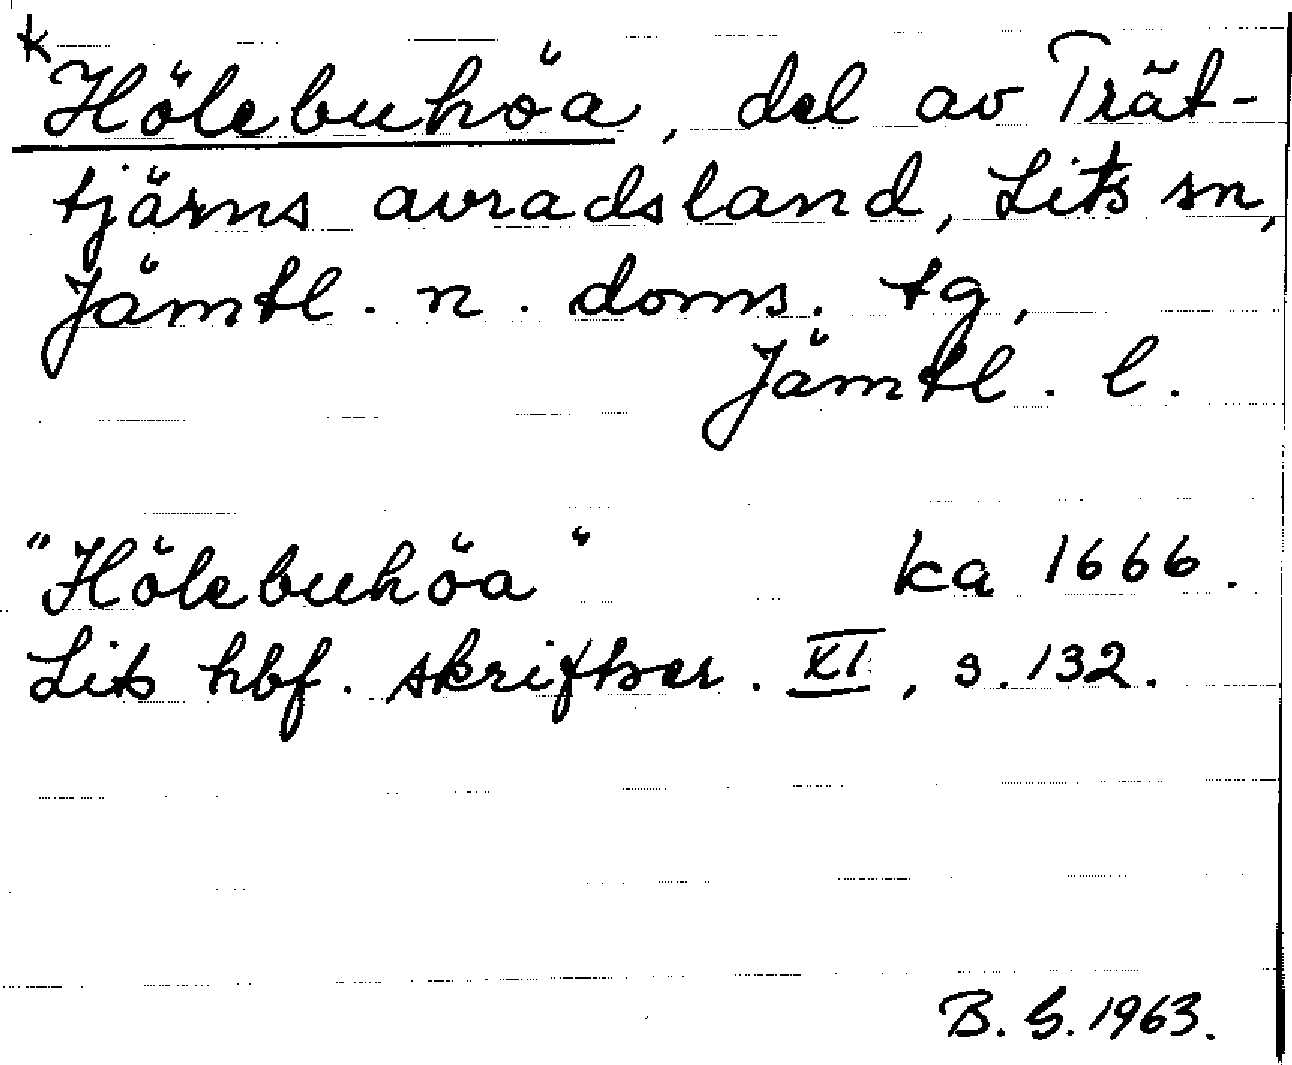 * Hölebuhöa, del av Trät-
tjärns avradsland, Lits sn,
Jämtl. n. doms. tg,
Jämtl. l.
"Hölebuhöa" ka 1666.
Lits hbf. skriftser. XI, s. 132.
B. G. 1963.